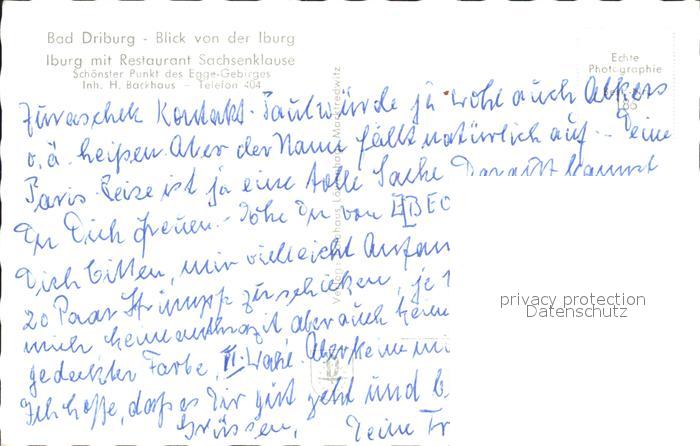 Bad Driburg - Blick von der Iburg
Iburg mit Restaurant Sachsenklause
Schönster Punkt des Egge-Gebirges
Inh. H. Backhaus - Telefon 404
Echte
Photographie
Kontakt. Paul würde ja wohl auch Alkers
o. ä. heißen. Aber der Name fällt natürlich auf. - Deine
Paris-Reise ist ja eine tolle Sache. Darauf kannst
Du Dich freuen. -
Dich bitten, mir vielleicht Anfan
20 Paar Strümpfe zu schicken, je 1
mich keine anthrazit aber auch keine
gedeckter Farbe, II. Wahl. Aber keine
Ich hoffe, daß es Dir gut geht und
Grüssen, Deine Fr
privacy protection
Datenschutz